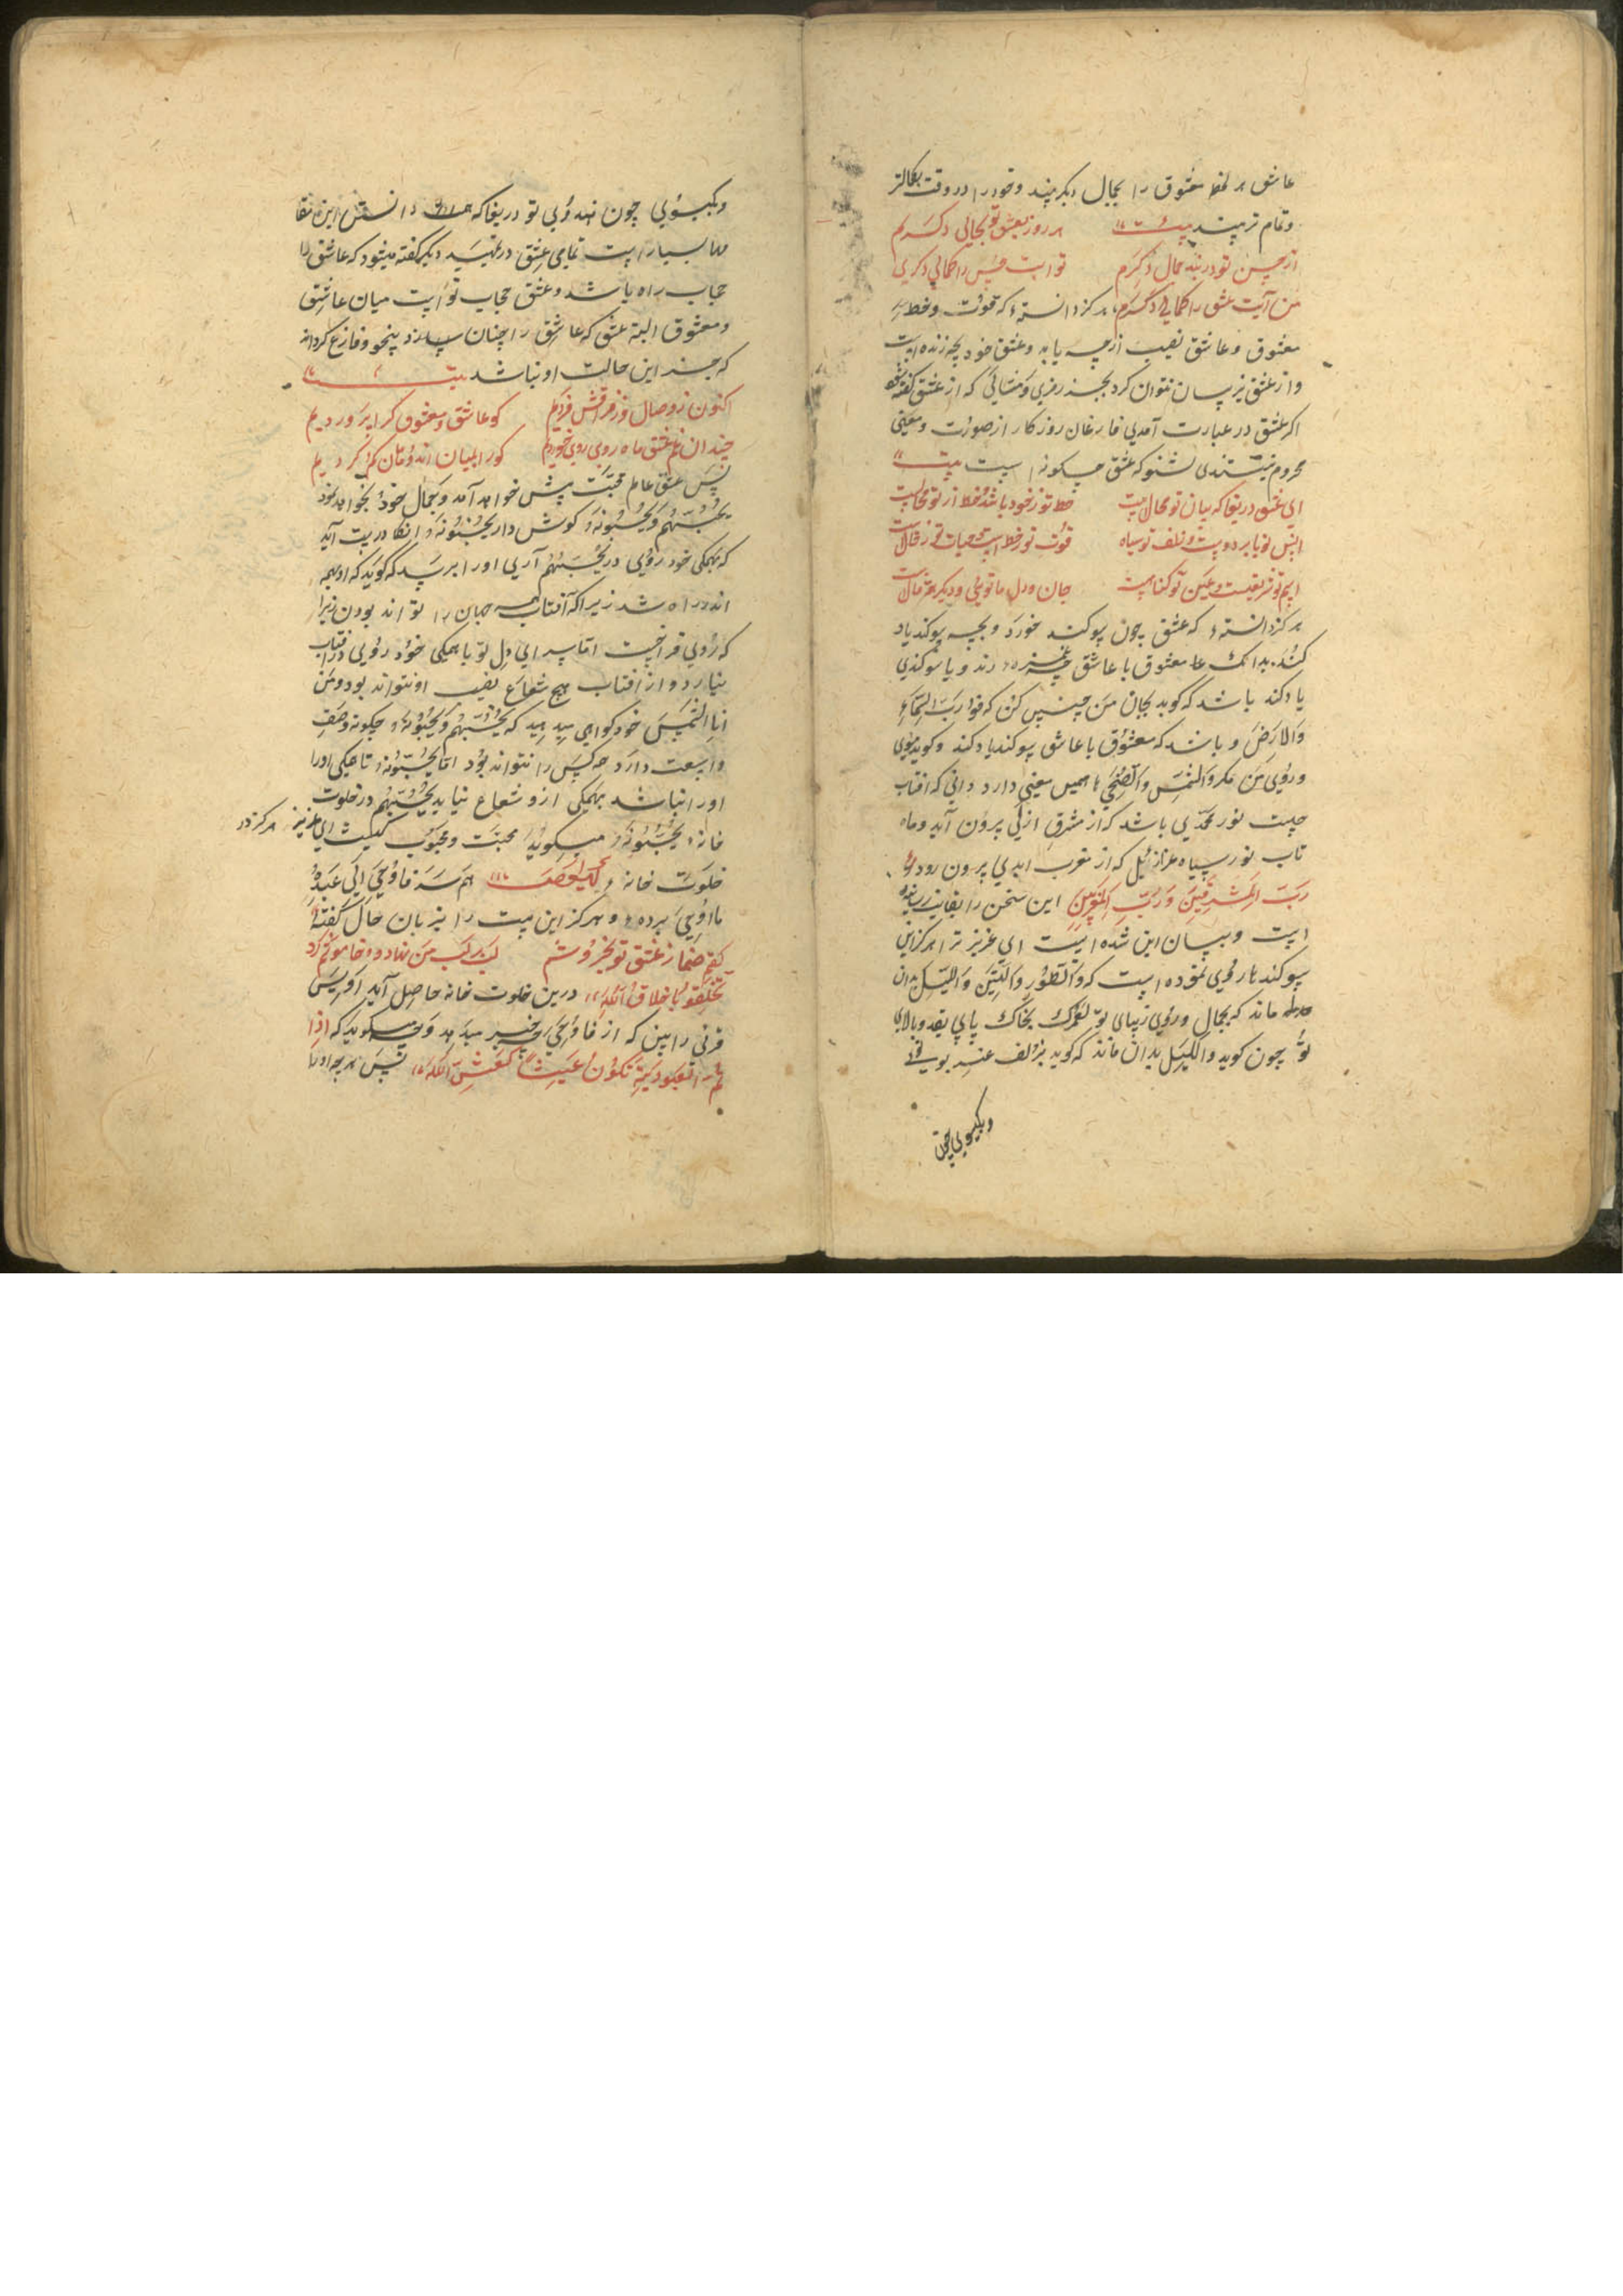 عاشق هر لحظه معشوق را بجمال دیگر بیند و خود را در وقت بکمالتر
و تمام تر بیند بیت هر روز بعشق تو بحالی دگرم
از حسن تو در بند جمال دگرم تو آیت حسن را کمالی دگری
من آیت عشق را کمالی دگرم هرگز دانستهٔ که قوت و حظ
معشوق و عاشق نصیب از چه یابد و عشق خود بچه زنده است
و از عشق نیز بیان نتوان کرد بجز رمزی و مثالی که از عشق گفته شود
اگر عشق در عبارت آمدی فارغان روزگار از صورت و معنی
محروم نیستندی بشنو که عشق چگونه است بیت
ای عشق دریغا که بیان تو محال است حظ تو ز خود باشد و حظ از تو محال است
انس تو بابر دوست و زلف تو سیاه قوت تو ز خط است و حیات تو ز خال است
اسم تو شریعت و عین تو گناه است جان و دل ما تویی و دیگر همه قال است
هرگز دانستهٔ که عشق چون سوکند خورد و بچه سوکند یاد
کند بدانک معشوق با عاشق غمزه زند و یا سوکندی
یاد کند باشد که کوید بجان من چنین کن که فورب السماء
والارض و باشد که معشوق با عاشق سوکند یاد کند و کوید بموی
و روی من مکر والشمس والضحی همین معنی دارد دانی که افتاب
چیست نور محمدی باشد که از مشرق ازلی بیرون آید و ماه
تاب نور سیاه عزازیل که از مغرب ابدی بیرون رود
رب المشرقین و رب المغربین این سخن را بغایت رسانیده
است و بیان این شده است ای عزیز ترا هرگز این
سوکند با روی نموده است که والطور والتین واللیل بدان
ماند که بجمال و روی زیبای تو لعمرک بخاک پای بقد و بالای
تو چون کوید واللیل بدان ماند که کوید بزلف عنبر بوی تو
و بکیسوی چون
و بکیسوی چون هندوی تو دریغا که دانستن این مقام
بسیار است تمامی عشق در تمهید دیگر گفته میشود که عاشق را
حجاب راه باشد و عشق حجاب تو است میان عاشق
و معشوق البته عشق که عاشق را چنان سازد بیخود و فارغ گرداند
که جز این حالت او نباشد بیت
اکنون ز وصال و ز فراقش فردیم کو عاشق و معشوق کرا پروردیم
چندان غم عشق ماه رویی خوردیم کو را بمیان اندهان گم کردیم
پس عشق عالم محبت پیش خواهد آمد و جمال خود بخواهد نمود
یحبهم و یحبونه کوش دار یحبونه آنگاه درست آید
که بهمگی خود روی در یحبهم آری او را برسد که کوید که او بهمه
اندر راه شد زیرا که آفتاب همه جهان را تواند بودن زیرا
که روی فراخست اما سرای دل تو با همگی خود روی در آفتاب
نیارد و از آفتاب هیچ شعاع نصیب او نتواند بود و من
آیات الشمس خود گواهی میدهد که یحبهم و یحبونه چگونه وصف
واسعت دارد همه کس را نتواند بود اما یحبونه تا همگی او را
او را نباشد بهمگی ازو شعاع نیابد یحبهم در خلوت
خانهٔ یحبونه میگوید محبت و محبوب کیست ای عزیز هرگز در
خلوت خانهٔ لیلة همسر فاوحی الی عبده
ما اوحی بردهٔ و هرگز این بیت را بزبان حال گفتهٔ
گفتم صنما ز عشق تو بخروشم لب بر لب من نهاد و خاموشم کرد
تخلقوا باخلاق الله درین خلوت خانه حاصل آید اویس
قرنی را بین که از فاوحی خبر میدهد و میگوید که اذا
تم العبودیة تکون عیشه کعیش الله پس هر چه او را